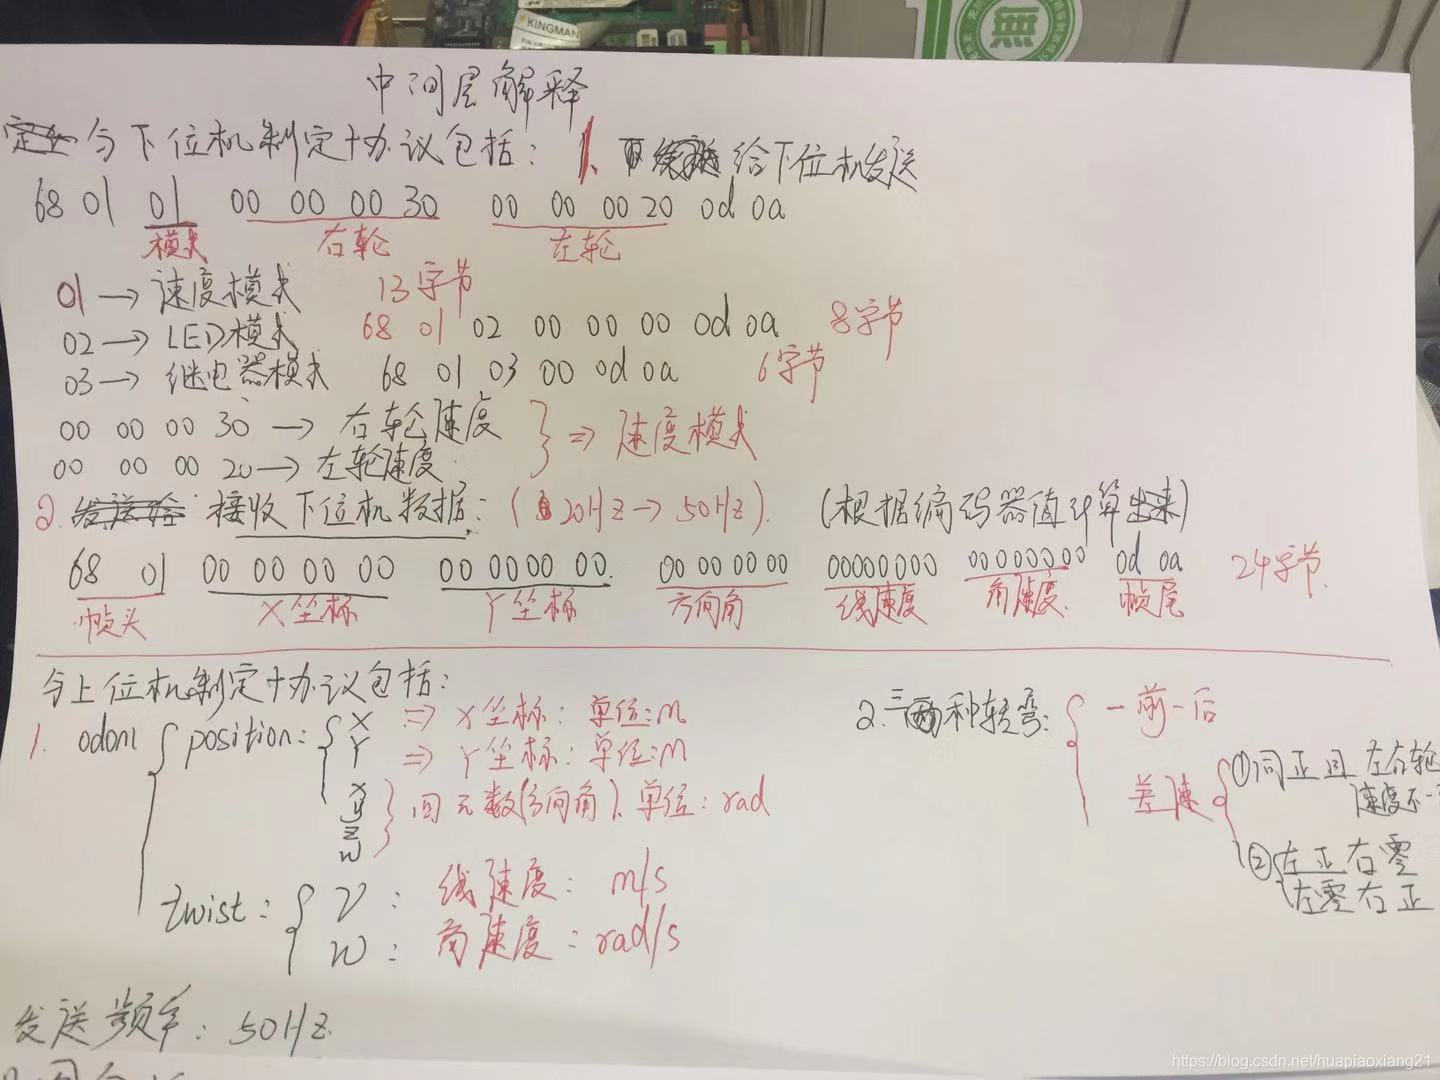 KINGMAN
無
中间层解释
与下位机制定协议包括: 1. 给下位机发送
68 01 01 00 00 00 30 00 00 00 20 0d 0a
模式 右轮 左轮
01 → 速度模式 13字节
02 → LED模式 68 01 02 00 00 00 0d 0a 8字节
03 → 继电器模式 68 01 03 00 0d 0a 6字节
00 00 00 30 → 右轮速度
00 00 00 20 → 左轮速度 } ⇒ 速度模式
2. 接收下位机数据: (20Hz → 50Hz). (根据编码器值计算出来)
68 01 00 00 00 00 00 00 00 00 00 00 00 00 00 00 00 00 00 00 00 00 0d 0a 24字节.
帧头 X坐标 Y坐标 方向角 线速度 角速度. 帧尾
与上位机制定协议包括:
1. odom { position: { X ⇒ X坐标: 单位:m
Y ⇒ Y坐标: 单位:m
x y z w } 四元数(方向角). 单位: rad
twist: { V : 线速度: m/s
W : 角速度: rad/s
2. 三种转弯: { 一前一后
差速 { ①同正且左右轮
速度不一
②左正右零
左零右正
发送频率: 50Hz.
https://blog.csdn.net/huapiaoxiang21